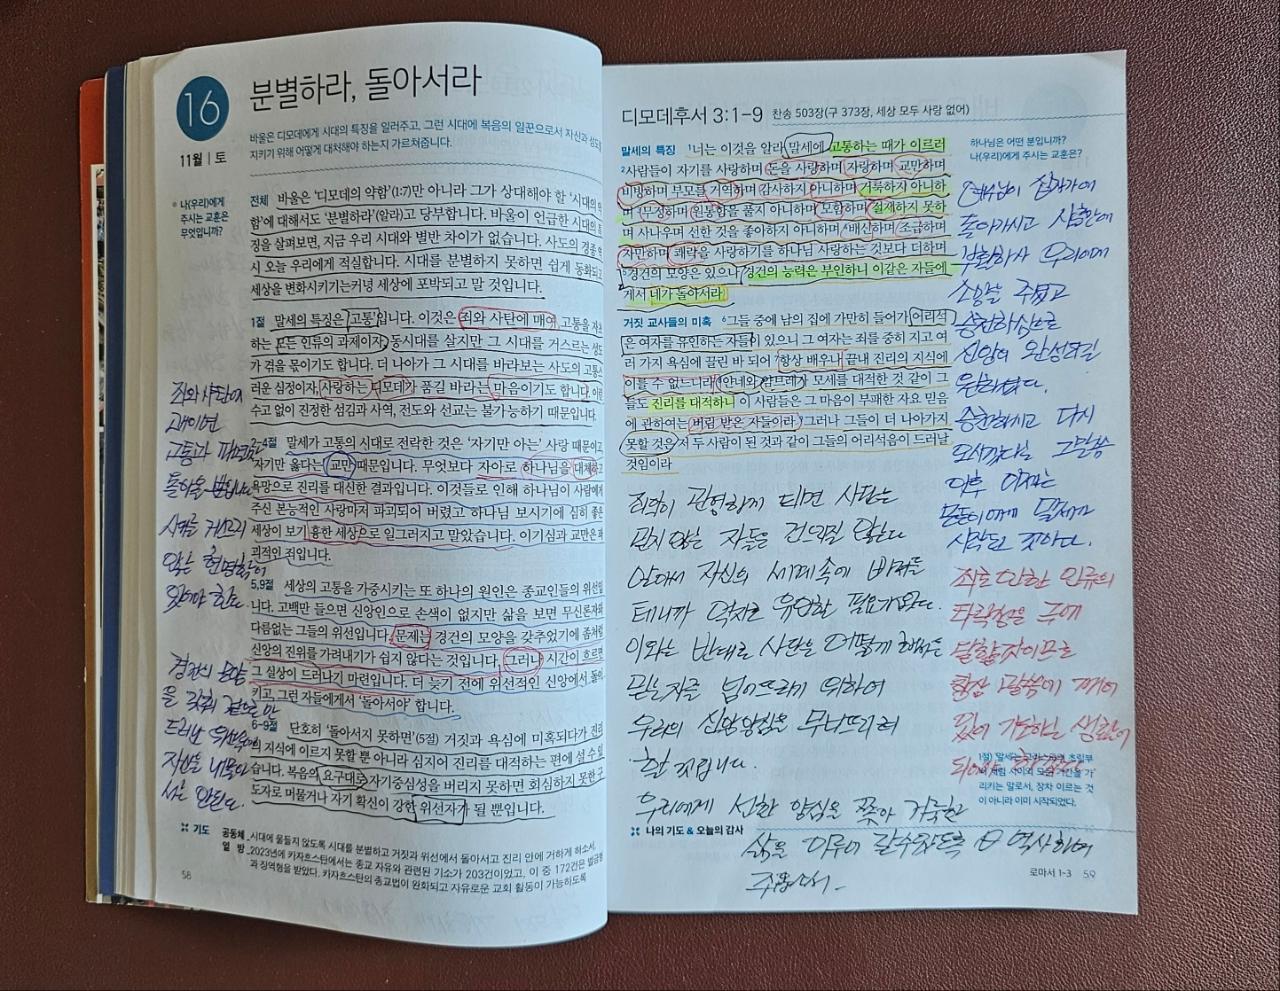 16
11월 | 토
분별하라, 돌아서라
바울은 디모데에게 시대의 특징을 일러주고, 그런 시대에 복음의 일꾼으로서 자신과 성도
지키기 위해 어떻게 대처해야 하는지 가르쳐줍니다.
나(우리)에게
주시는 교훈은
무엇입니까?
전체 바울은 '디모데의 약함'(1:7)만 아니라 그가 상대해야 할 '시대의
함'에 대해서도 '분별하라'(알라)고 당부합니다. 바울이 언급한 시대의 특
징을 살펴보면, 지금 우리 시대와 별반 차이가 없습니다. 사도의 경종
시 오늘 우리에게 적실합니다. 시대를 분별하지 못하면 쉽게 동화되고
세상을 변화시키기는커녕 세상에 포박되고 말 것입니다.
1절 말세의 특징은 '고통'입니다. 이것은 죄와 사탄에 매여 고통을 자초
하는 모든 인류의 과제이자, 동시대를 살지만 그 시대를 거스르는 성도
가 겪을 몫이기도 합니다. 더 나아가 그 시대를 바라보는 사도의 고통스
러운 심정이자, 사랑하는 디모데가 품길 바라는 마음이기도 합니다. 이런
수고 없이 진정한 섬김과 사역, 전도와 선교는 불가능하기 때문입니다.
-4절 말세가 고통의 시대로 전락한 것은 '자기만 아는' 사랑 때문이고,
자기만 옳다는 교만 때문입니다. 무엇보다 자아로 하나님을 대체하고
욕망으로 진리를 대신한 결과입니다. 이것들로 인해 하나님이 사람에게
주신 본능적인 사랑마저 파괴되어 버렸고 하나님 보시기에 심히 좋은
세상이 보기 흉한 세상으로 일그러지고 말았습니다. 이기심과 교만은 파
괴적인 죄입니다.
5,9절 세상의 고통을 가중시키는 또 하나의 원인은 종교인들의 위선입
니다. 고백만 들으면 신앙인으로 손색이 없지만 삶을 보면 무신론자와
다름없는 그들의 위선입니다. 문제는 경건의 모양을 갖추었기에 좀처럼
신앙의 진위를 가려내기가 쉽지 않다는 것입니다. 그러나 시간이 흐르면
그 실상이 드러나기 마련입니다. 더 늦기 전에 위선적인 신앙에서 돌이
키고, 그런 자들에게서 '돌아서야' 합니다.
6-9절 단호히 '돌아서지 못하면'(5절) 거짓과 욕심에 미혹되다가 진리
의 지식에 이르지 못할 뿐 아니라 심지어 진리를 대적하는 편에 설 수 있
습니다. 복음의 요구대로 자기중심성을 버리지 못하면 회심하지 못한 구
도자로 머물거나 자기 확신이 강한 위선자가 될 뿐입니다.
죄와 사탄에
매이면
고통과
돌아올 뿐입니다
시대를 거스르
않는 현명함이
있어야 한다.
경건의 모양
을 갖춰 겉으로 만
드러난 위선에
자신을 내몰아
서는 안된다.
기도 공동체 시대에 물들지 않도록 시대를 분별하고 거짓과 위선에서 돌아서고 진리 안에 거하게 하소서.
열 방 2023년에 카자흐스탄에서는 종교 자유와 관련된 기소가 203건이었고, 이 중 172건은 벌금형
과 징역형을 받았다. 카자흐스탄의 종교법이 완화되고 자유로운 교회 활동이 가능하도록
58
디모데후서 3:1-9 찬송 503장(구 373장, 세상 모두 사랑 없어)
말세의 특징 1너는 이것을 알라 말세에 고통하는 때가 이르러
2사람들이 자기를 사랑하며 돈을 사랑하며 자랑하며 교만하며
비방하며 부모를 거역하며 감사하지 아니하며 거룩하지 아니하
며 3무정하며 원통함을 풀지 아니하며 모함하며 절제하지 못하
며 사나우며 선한 것을 좋아하지 아니하며 4배신하며 조급하며
자만하며 쾌락을 사랑하기를 하나님 사랑하는 것보다 더하며
5경건의 모양은 있으나 경건의 능력은 부인하니 이같은 자들에
게서 네가 돌아서라
거짓 교사들의 미혹 6그들 중에 남의 집에 가만히 들어가 어리석
은 여자를 유인하는 자들이 있으니 그 여자는 죄를 중히 지고 여
러 가지 욕심에 끌린 바 되어 7항상 배우나 끝내 진리의 지식에
이를 수 없느니라 8얀네와 얌브레가 모세를 대적한 것 같이 그
들도 진리를 대적하니 이 사람들은 그 마음이 부패한 자요 믿음
에 관하여는 버림 받은 자들이라 9그러나 그들이 더 나아가지
못할 것은 저 두 사람이 된 것과 같이 그들의 어리석음이 드러날
것임이라
하나님은 어떤 분입니까?
나(우리)에게 주시는 교훈은?
예수님이 십자가에
돌아가시고 삼일만에
부활하사 우리에게
소망을 주셨고
승천하심으로
신앙의 완성의길
승천하시고 다시
오시겠다는 그말씀
이후 이제는
모든이에게 말세가
시작된 것이다.
죄로 인한 인류의
타락성은 극에
달할것이므로
항상 말씀에 깨어
있어 기도하는 생활이
되어야
1절) '말세'는
리키는 말로서, 장차 이르는 것
이 아니라 이미 시작되었다.
죄악이 관영하게 되면 사탄은
믿지 않는 자들을 건드릴 않는다
알아서 자신의 세계속에 바져들
테니까 덕지로 유인할 필요가없다.
이와는 반대로 사탄은 어떻게 해서든
믿는자를 넘어뜨리기 위하여
우리의 신앙양심을 무너뜨리려
할 것입니다.
우리에게 선한 양심을 쫓아 거룩한
삶을 이루어 갈수있도록 역사하여
주옵소서
나의 기도 & 오늘의 감사
로마서 1-3 59